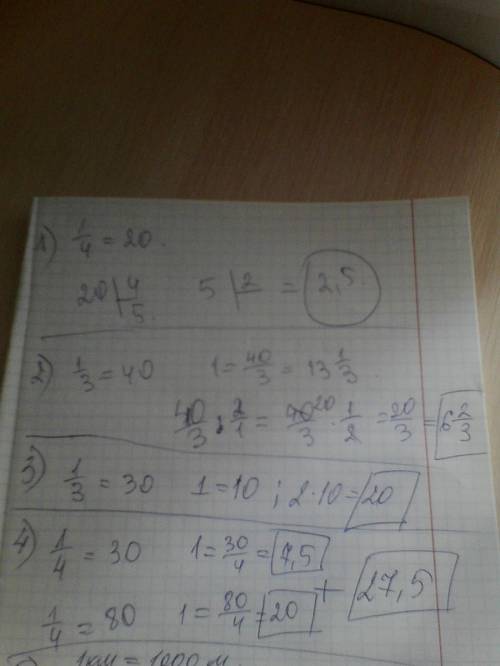 1) 1/4 = 20.
20 | 4
5.
5 | 2 = 2,5.
2) 1/3 = 40 1 = 40/3 = 13 1/3.
40/3 : 2/1 = 40 20/3 · 1/2 = 20/3 = 6 2/3
3) 1/3 = 30 1 = 10 ; 2·10 = 20
4) 1/4 = 30 1 = 30/4 = 7,5
+ 27,5
1/4 = 80 1 = 80/4 = 20
1км = 1000 м.